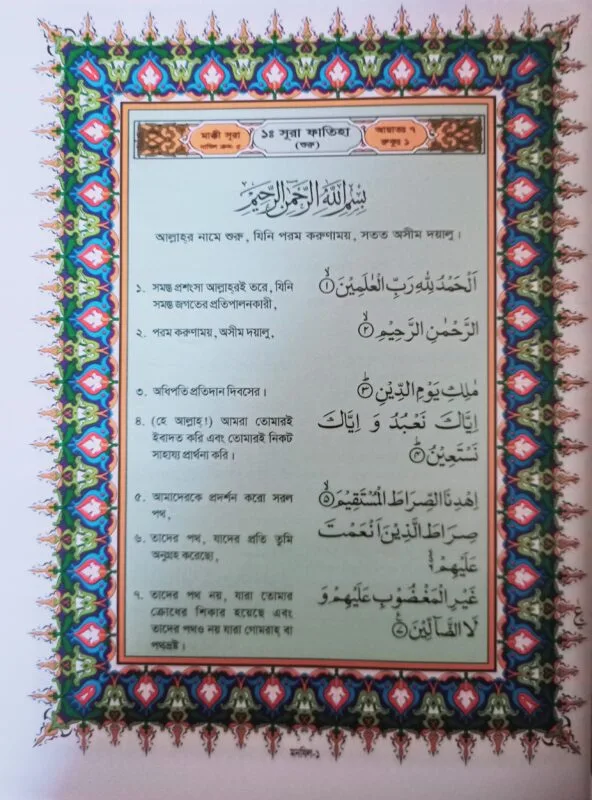 মাক্কী সূরা
নাযিল ক্রম: ৫
১ঃ সূরা ফাতিহা
(শুরু)
আয়াতঃ ৭
রুকুঃ ১
بِسْمِ اللّٰهِ الرَّحْمٰنِ الرَّحِيْمِ
আল্লাহ্‌র নামে শুরু, যিনি পরম করুণাময়, সতত অসীম দয়ালু।
১. সমস্ত প্রশংসা আল্লাহ্‌রই তরে, যিনি
সমস্ত জগতের প্রতিপালনকারী,
اَلْحَمْدُ لِلّٰهِ رَبِّ الْعٰلَمِيْنَ ۙ﴿١﴾
২. পরম করুণাময়, অসীম দয়ালু,
الرَّحْمٰنِ الرَّحِيْمِ ۙ﴿٢﴾
৩. অধিপতি প্রতিদান দিবসের।
مٰلِكِ يَوْمِ الدِّيْنِ ؕ﴿٣﴾
৪. (হে আল্লাহ্‌!) আমরা তোমারই
ইবাদত করি এবং তোমারই নিকট
সাহায্য প্রার্থনা করি।
اِيَّاكَ نَعْبُدُ وَ اِيَّاكَ
نَسْتَعِيْنُ ؕ﴿۴﴾
৫. আমাদেরকে প্রদর্শন করো সরল
পথ,
اِهْدِنَا الصِّرَاطَ الْمُسْتَقِيْمَ ۙ﴿۵﴾
৬. তাদের পথ, যাদের প্রতি তুমি
অনুগ্রহ করেছো,
صِرَاطَ الَّذِيْنَ اَنْعَمْتَ
عَلَيْهِمْ ۙ۬ۦ
৭. তাদের পথ নয়, যারা তোমার
ক্রোধের শিকার হয়েছে এবং
তাদের পথও নয় যারা গোমরাহ্ বা
পথভ্রষ্ট।
غَيْرِ الْمَغْضُوْبِ عَلَيْهِمْ وَ
لَا الضَّآلِّيْنَ ﴿۷﴾
ع
মনযিল-১